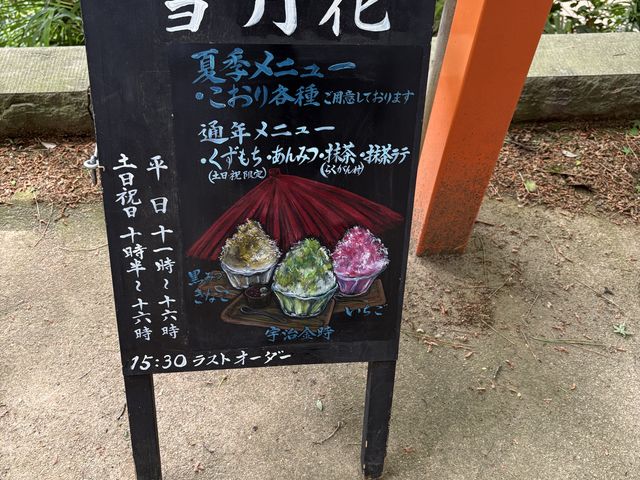 雪月花
夏季メニュー
・こおり各種 ご用意しております
通年メニュー
・くずもち・あんみつ・抹茶・抹茶ラテ
(土日祝限定) (らくがん付)
平日 十一時～十六時
土日祝日 十時半～十六時
きなこ
宇治金時
いちご
15:30 ラストオーダー